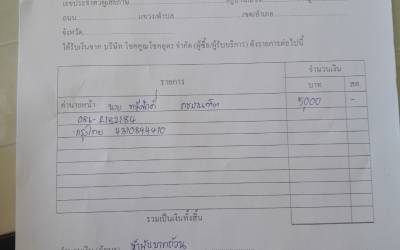 เลขประจำตัวผู้เสียภาษี
ถนน แขวง/ตำบล เขต/อำเภอ
จังหวัด
ได้รับเงินจาก บริษัท โชคคูณโชคคูตร จำกัด (ผู้ซื้อ/ผู้รับบริการ) ดังรายการต่อไปนี้
รายการ จำนวนเงิน
บาท สต.
ค่านายหน้า นาย 5,000 -
086-2182184
กรุงไทย 4310894410
รวมเป็นเงินทั้งสิ้น
ห้าพันบาทถ้วน